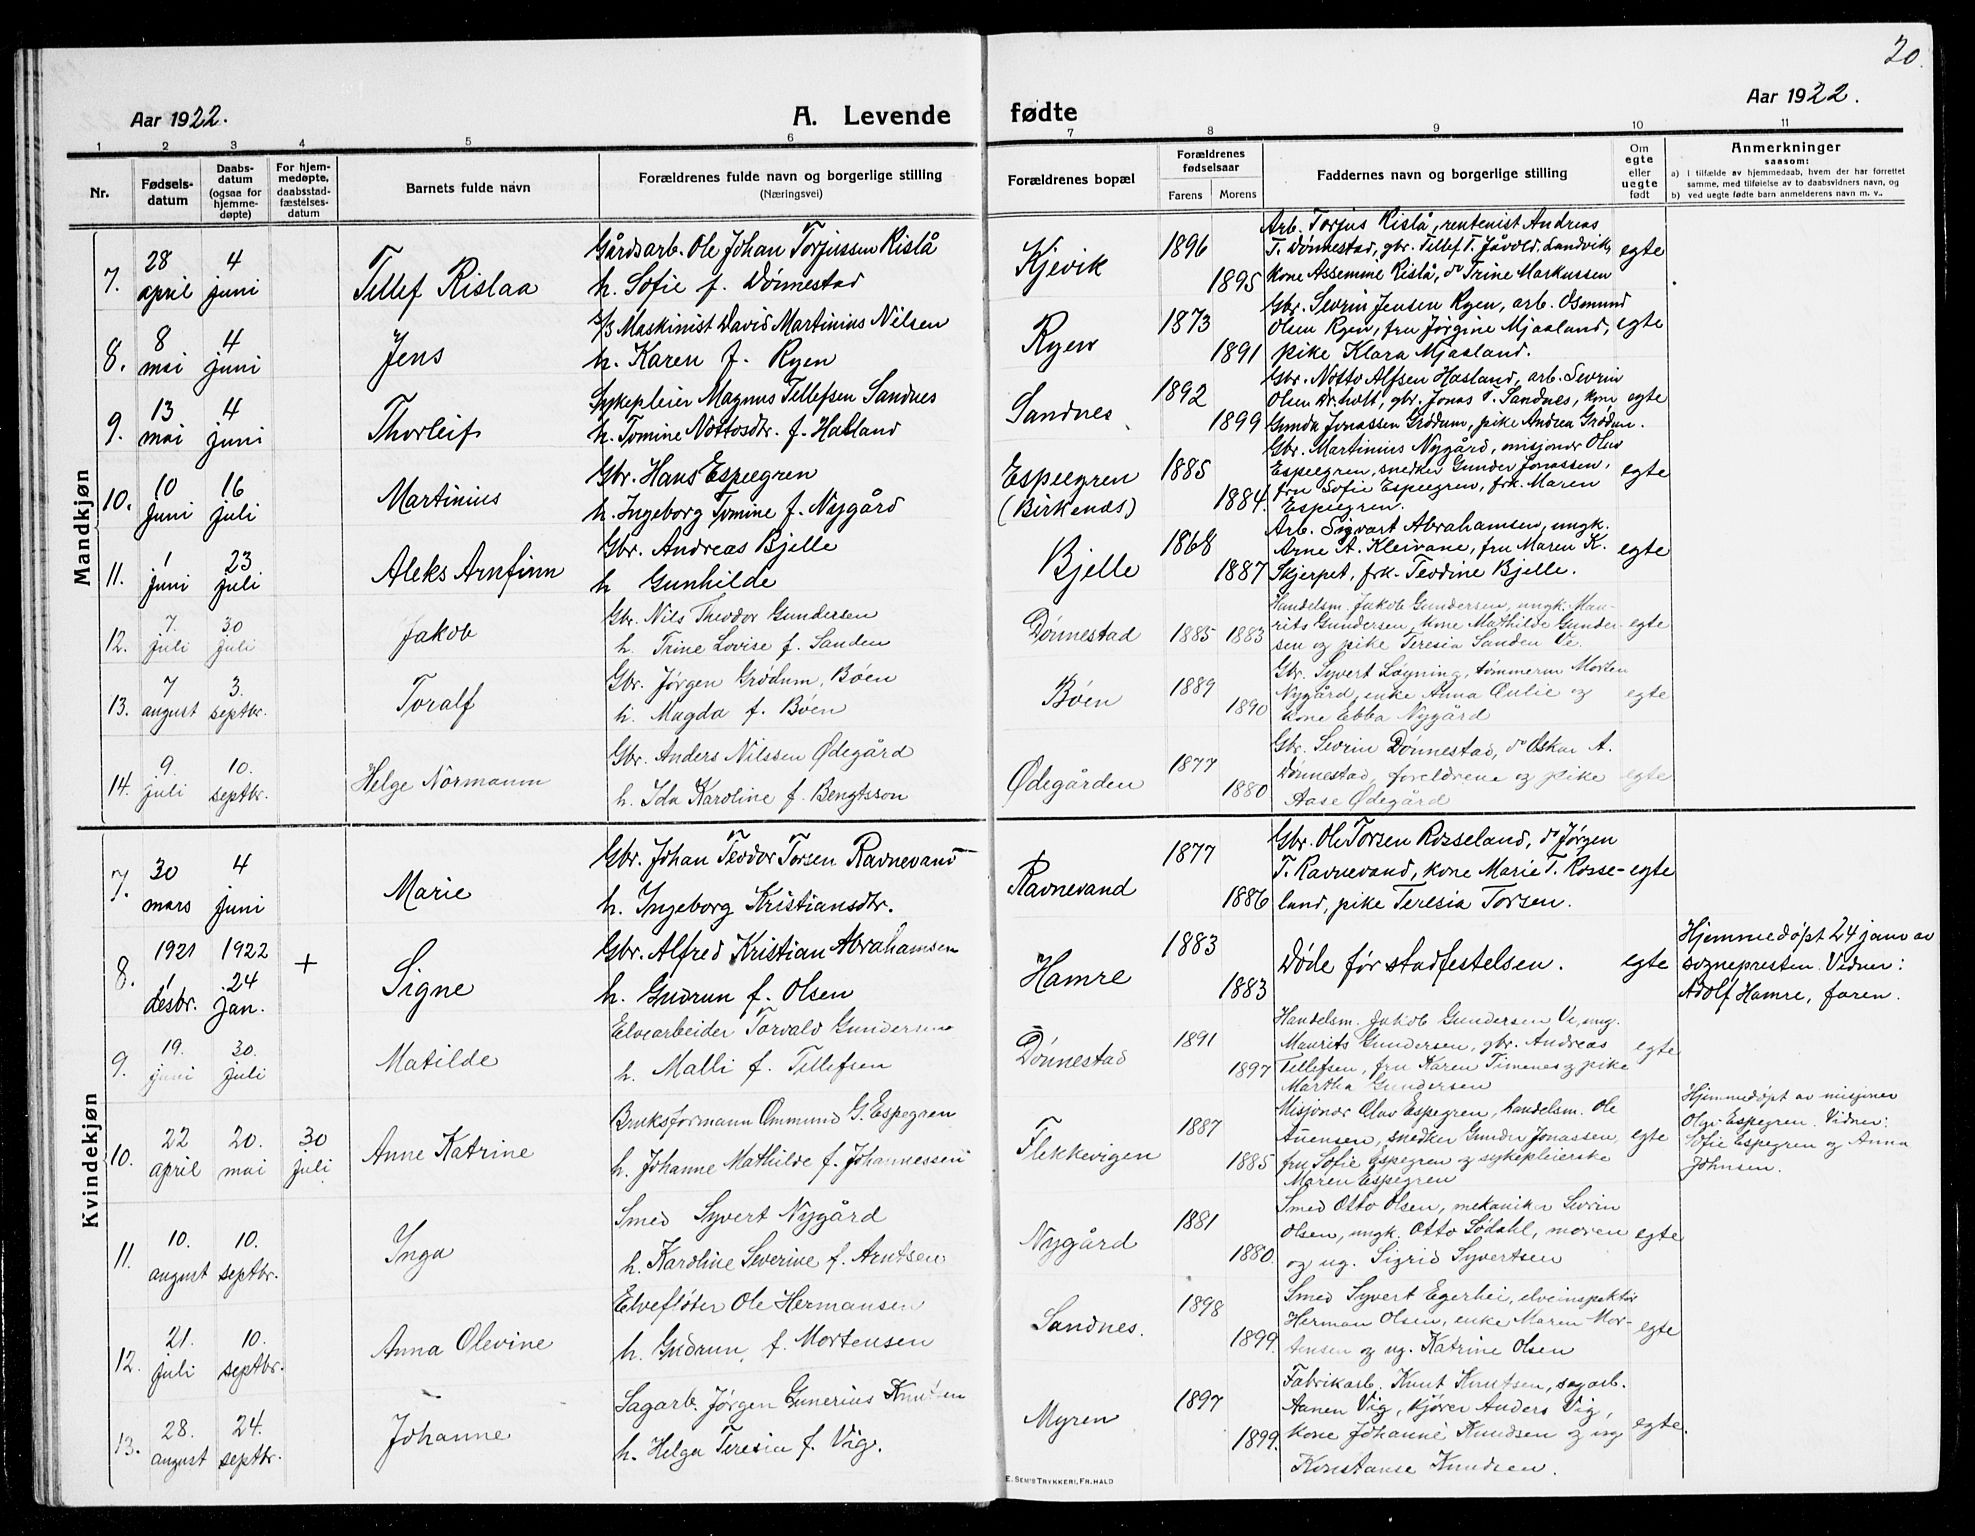 20.
Aar 1922.
A. Levende fødte
Aar 1922.
1 2 3 4 5 6 7 8 9 10 11
Nr.
Fødsels-
datum
Daabs-
datum
(ogsaa for
hjemme-
døpte)
For hjem-
medøpte,
daabsstad-
fæstelses-
datum
Barnets fulde navn
Forældrenes fulde navn og borgerlige stilling
(Næringsvei)
Forældrenes bopæl
Forældrenes
fødselsaar
Farens Morens
Faddernes navn og borgerlige stilling
Om
egte
eller
uegte
født
Anmerkninger
saasom:
a) I tilfælde av hjemmedaab, hvem der har forrettet
samme, med tilføielse av to daabsvidners navn, og
b) ved uegte fødte barn anmelderens navn m. v..
Mandkjøn
7.
28 april
4 juni
Tellef Rislaa
Gårdsarb. Ole Johan Torjussen Rislå
h. Sofie f. Dønnestad
Kjevik
1896
1895
Arb. Torjus Rislå, rentenist Andreas
T. Dønnestad, gbr. Tellef T. Jåvold, Landvik,
kone Assemine Rislå, do Trine Markussen
egte
8.
8 mai
4 juni
Jens
s/s Maskinist David Martinius Nilsen
h. Karen f. Ryen
Ryen
1873
1891
Gbr. Sevrin Jensen Ryen, arb. Osmund
Olsen Ryen, fru Jørgine Mjaaland,
pike Klara Mjaaland.
egte
9.
13 mai
4 juni
Thorleif
Sykepleier Magnus Tellefsen Sandnes
h. Tomine Nottosdtr. f. Hasland
Sandnes
1892
1899
Gbr. Notto Alfsen Hasland, arb. Sevrin
Olsen Dr.holt, gbr. Jonas T. Sandnes, kone
Gunda Jonassen Grødum, pike Andrea Grødum.
egte
10.
10 juni
16 juli
Martinius
Gbr. Hans Espeegren
h. Ingeborg Tomine f. Nygård
Espeegren
(Birkenæs)
1885
1884.
Gbr. Martinius Nygård, misjonær Olav
Espeegren, snedker Gunder Jonassen,
fru Sofie Espegren, frk. Maren
Espegren.
egte
11.
1 juni
23 juli
Aleks Arnfinn
Gbr. Andreas Bjelle
h Gunhilde
Bjelle
1868
1887
Arb. Sigvart Abrahamsen, ungk.
Arne A. Kleivane, fru Maren K.
Skjerpet, frk. Teodine Bjelle.
egte
12.
7. juli
30 juli
Jakob
Gbr. Nils Theodor Gundersen
h. Trine Lovise f. Sanden
Dønnestad
1885 1883
Handelsm. Jakob Gundersen, ungk. Mau-
rits Gundersen, kone Mathilde Gunder-
sen og pike Teresia Sanden Ve.
egte
13.
7 august
3. septbr.
Toralf
Gbr. Jørgen Grødum, Bøen
h. Magda f. Bøen
Bøen
1889
1890
Gbr. Syvert Løyning, tømmerm Morten
Nygård, enke Anna Oulie og
kone Ebba Nygård
egte
14.
9. juli
10. septbr.
Helge Normann
Gbr. Anders Nilssen Ødegård
h. Ida Karoline f. Bengtsson
Ødegården
1877
1880
Gbr. Sevrin Dønnestad, do Oskar A.
Dønnestad, foreldrene og pike
Aase Ødegård
egte
Kvindekjøn
7.
30 mars
4 juni
Marie
Gbr. Johan Teodor Torsen Ravnevand
h. Ingeborg Kristiansdtr.
Ravnevand
1877
1886
Gbr. Ole Torsen Rosseland, do Jørgen
T. Ravnevand, kone Marie T. Rosse-
land, pike Teresia Torsen.
egte
8.
1921
1 desbr.
1922
24 jan.
+
Signe
Gbr. Alfred Kristian Abrahamsen
h. Gudrun f. Olsen
Hamre
1883
1883
Døde før stadfestelsen.
egte
Hjemmedøpt 24 jan av
sognepresten. Vidner:
Adolf Hamre, faren.
9.
19. juni
30. juli
Matilde
Elvearbeider Torvald Gundersen
h. Malli f. Tellefsen
Dønnestad
1891
1897
Handelsm. Jakob Gundersen Ve, ung.
Maurits Gundersen, gbr. Andreas
Tellefsen, fru Karen Timenes og pike
Martha Gundersen
egte
10.
22 april
20. mai
30 juli
Anne Katrine
Bruksformann Ommund G. Espegren
h. Johanne Mathilde f. Johannessen
Flekkevigen
1887
1885
Misjonær Olav Espegren, handelsm. Ole
Auensen, snedker Gunder Jonassen,
fru Sofie Espegren og sykepleierske
Maren Espegren
egte
Hjemmedøpt av misjonær
Olav Espegren. Vidner:
Sofie Espegren og Anna
Johnsen.
11.
10. august
10. septbr.
Inga
Smed Syvert Nygård
h. Karoline Severine f. Arntsen
Nygård
1881
1880.
Smed Otto Olsen, mekaniker Sevrin
Olsen, ungk. Otto Sødahl, moren
og ug. Sigrid Syvertsen
egte
12.
21. juli
10. septbr.
Anna Olevine
Elvefløter Ole Hermansen
h. Gudrun, f. Mortensen
Sandnes.
1898
1899.
Smed Syvert Egerhei, elveinspektør
Herman Olsen, enke Maren Mor-
tensen og ug. Katrine Olsen
egte
13.
28. august
24. septbr.
Johanne
Sagarb. Jørgen Gunerius Knutsen
h. Helga Teresia f. Vig.
Myren
1897
1899.
Fabrikarb. Knut Knutsen, sagarb.
Aanen Vig, kjører Anders Vig,
kone Johanne Knudsen og ug
Konstanse Knudsen.
egte.
E. SEM'S TRYKKERI, FR.HALD